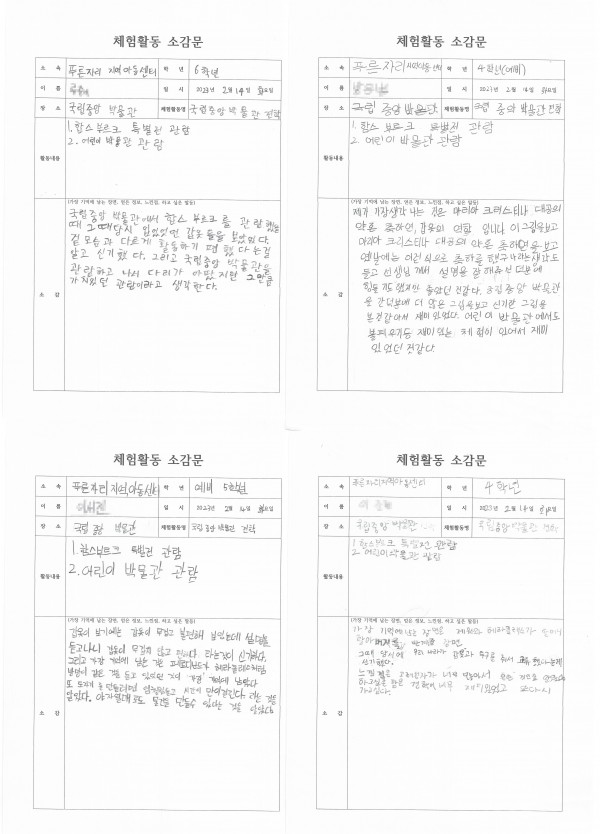 체험활동 소감문
소 속 푸른자리 지역아동센터 학 년 6학년
이 름 일 시 2023년 2월 14일 화요일
장 소 국립중앙 박물관 체험활동명 국립중앙박물관 견학
활동내용
1. 합스부르크 특별전 관람
2. 어린이 박물관 관람
(가장 기억에 남는 장면, 얻은 정보, 느낀점, 하고 싶은 말등)
소 감
국립중앙 박물관에서 합스부르크를 관람했을
때 그때당시 입었었던 갑옷들을 보았었다.
겉모습과 다르게 활동하기 편했다는걸
알고 신기했다. 그리고 국립중앙 박물관을
관람하고 나서 다리가 아팠지만 그만큼
가치있던 관람이라고 생각한다.
체험활동 소감문
소 속 푸른자리 지역아동센터 학 년 4학년(예비)
이 름 일 시 2023년 2월 14일 화요일
장 소 국립 중앙 박물관 체험활동명 국립 중앙 박물관 견학
활동내용
1. 합스부르크 특별전 관람
2. 어린이 박물관 관람
(가장 기억에 남는 장면, 얻은 정보, 느낀점, 하고 싶은 말등)
소 감
제가 가장 생각나는 것은 마리아 크리스티나 대공의
약혼 축하연, 갑옷의 연합 입니다 이 그림을보고
마리아 크리스티나 대공의 약혼 축하연을 보고
옛날에는 이런 식으로 축하를 했구나라는생각도
들고 선생님께서 설명을 잘 해주신 덕분에
힘들기도 했지만 좋았던 것같다. 국립 중앙 박물관
을 간덕분에 더 많은 그림을보고 신기한 그림을
본것같아서 재미있었다. 어린이 박물관에서도
불피우기등 재미있는 체험이 있어서 재미
있었던 것같다.
체험활동 소감문
소 속 푸른자리 지역아동센터 학 년 예비 5학년
이 름 일 시 2023년 2월 14일 화요일
장 소 국립 중앙 박물관 체험활동명 국립 중앙 박물관 견학
활동내용
1. 합스부르크 특별전 관람
2. 어린이 박물관 관람
(가장 기억에 남는 장면, 얻은 정보, 느낀점, 하고 싶은 말등)
소 감
갑옷이 보기에는 갑옷이 무겁고 불편해 보였는데 설명을
듣고나니 갑옷이 무겁지 않고 편하다. 라는것이 신기하다.
그리고 가장 기억에 남는 것은
기억에 남았다
만들려면
말았다.
체험활동 소감문
소 속 푸른자리지역아동센터 학 년 4학년
이 름 일 시 2023년 2월 14일 화요일
장 소 국립중앙 박물관 체험활동명 국립중앙박물관 견학
활동내용
1. 합스부르크 특별전 관람
2. 어린이박물관 관람
(가장 기억에 남는 장면, 얻은 정보, 느낀점, 하고 싶은 말등)
소 감
가장 기억에 남는 장면은
장면.
그때 당시에 우리 나라가
신기했다.
느낀 점은
하고싶은 말은 견학이 너무 재미있었고 또다시
가고싶다.